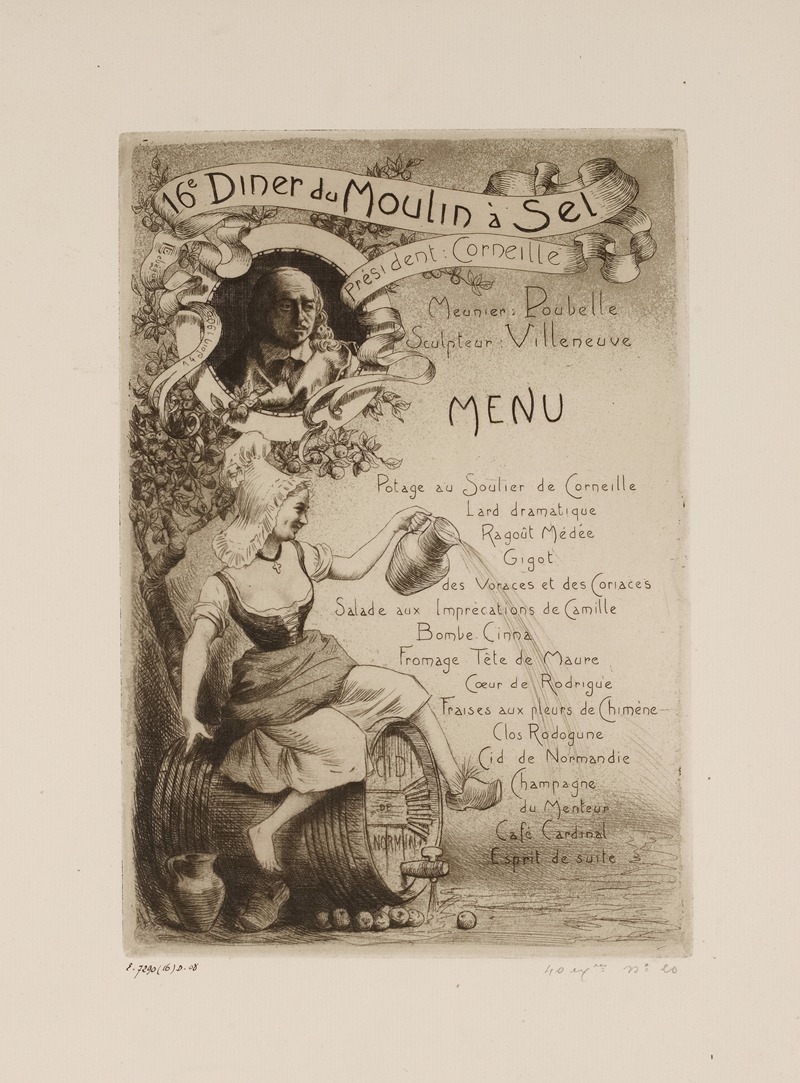 16e Diner du Moulin à Sel
Président: Corneille
14 Juin 1906
Meunier: Poubelle
Sculpteur: Villeneuve
MENU
Potage au Soulier de Corneille
Lard dramatique
Ragoût Médée
Gigot
des Voraces et des Coriaces
Salade aux Imprécations de Camille
Bombe Cinna
Fromage Tête de Maure
Cœur de Rodrigue
Fraises aux pleurs de Chimène
Clos Rodogune
Cid de Normandie
Champagne
du Menteur
Café Cardinal
Esprit de suite
CID
DE
NORMAN
E.7290(16).D.08
40 exres No 20